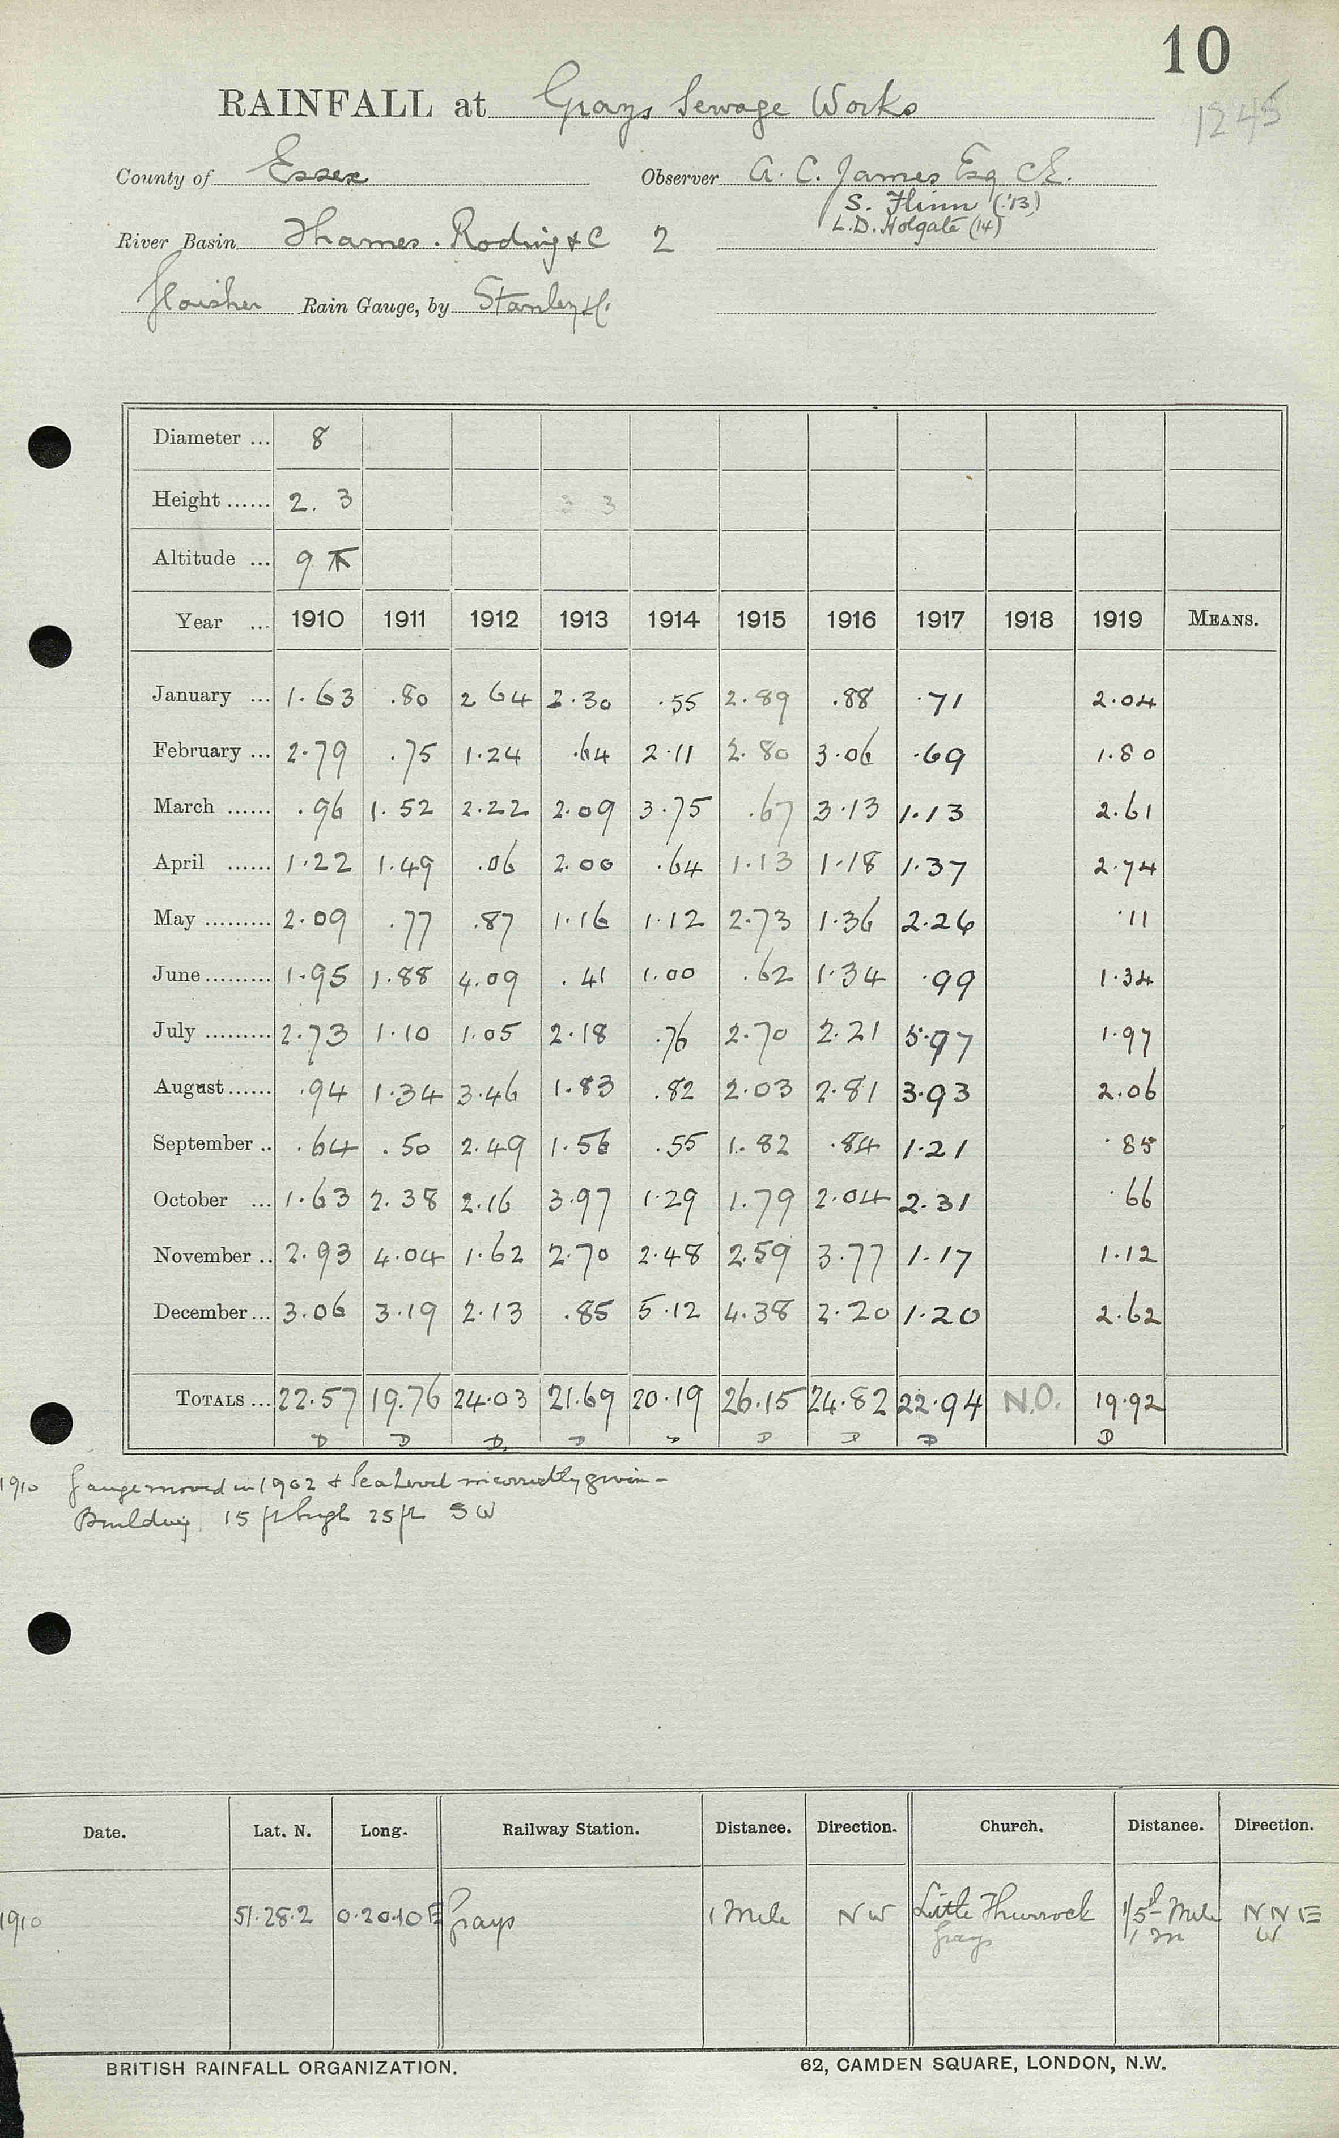 10
RAINFALL at Grays Sewage Works 1245
County of Essex Observer A. C. James Esq CE.
S. Flinn ('13)
River Basin Thames. Roding & C 2 L.D. Holgate (14)
Rain Gauge, by Stanley
Diameter ... 8
Height ...... 2. 3 3 3
Altitude ... 9
Year ... 1910 1911 1912 1913 1914 1915 1916 1917 1918 1919 MEANS.
January ... 1.63 .80 2 64 2.30 .55 2.89 .88 .71 2.04
February ... 2.79 .75 1.24 .64 2.11 2.80 3.06 .69 1.80
March ...... .96 1.52 2.22 2.09 3.75 .67 3.13 1.13 2.61
April ...... 1.22 1.49 .06 2.00 .64 1.13 1.18 1.37 2.74
May ......... 2.09 .77 .87 1.16 1.12 2.73 1.36 2.26 .11
June ......... 1.95 1.88 4.09 .41 1.00 .62 1.34 .99 1.34
July ......... 2.73 1.10 1.05 2.18 .76 2.70 2.21 5.97 1.97
August...... .94 1.34 3.46 1.83 .82 2.03 2.81 3.93 2.06
September .. .64 .50 2.49 1.56 .55 1.82 .84 1.21 .85
October ... 1.63 2.38 2.16 3.97 1.29 1.79 2.04 2.31 .66
November .. 2.93 4.04 1.62 2.70 2.48 2.59 3.77 1.17 1.12
December ... 3.06 3.19 2.13 .85 5.12 4.38 2.20 1.20 2.62
TOTALS ... 22.57 19.76 24.03 21.69 20.19 26.15 24.82 22.94 N.O. 19.92
D D D D D D D D D
1910 Gauge moved in 1902 & Sea Level incorrectly given -
Building 15 ft high 25 ft SW
Date. Lat. N. Long. Railway Station. Distance. Direction. Church. Distance. Direction.
1910 51.28.2 0.20.10 E Grays 1 Mile NW Little Thurrock 1/5 Mile NNE
Grays 1 m W
BRITISH RAINFALL ORGANIZATION. 62, CAMDEN SQUARE, LONDON, N.W.